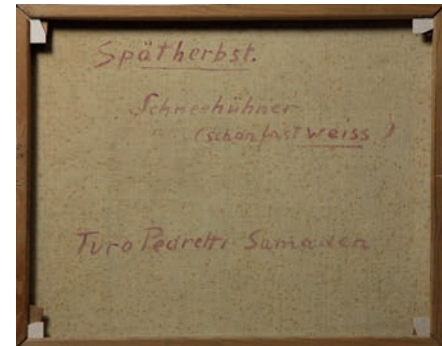 Spätherbst.
Schneehühner
(schon fast weiss)
Turo Pedretti Samaden